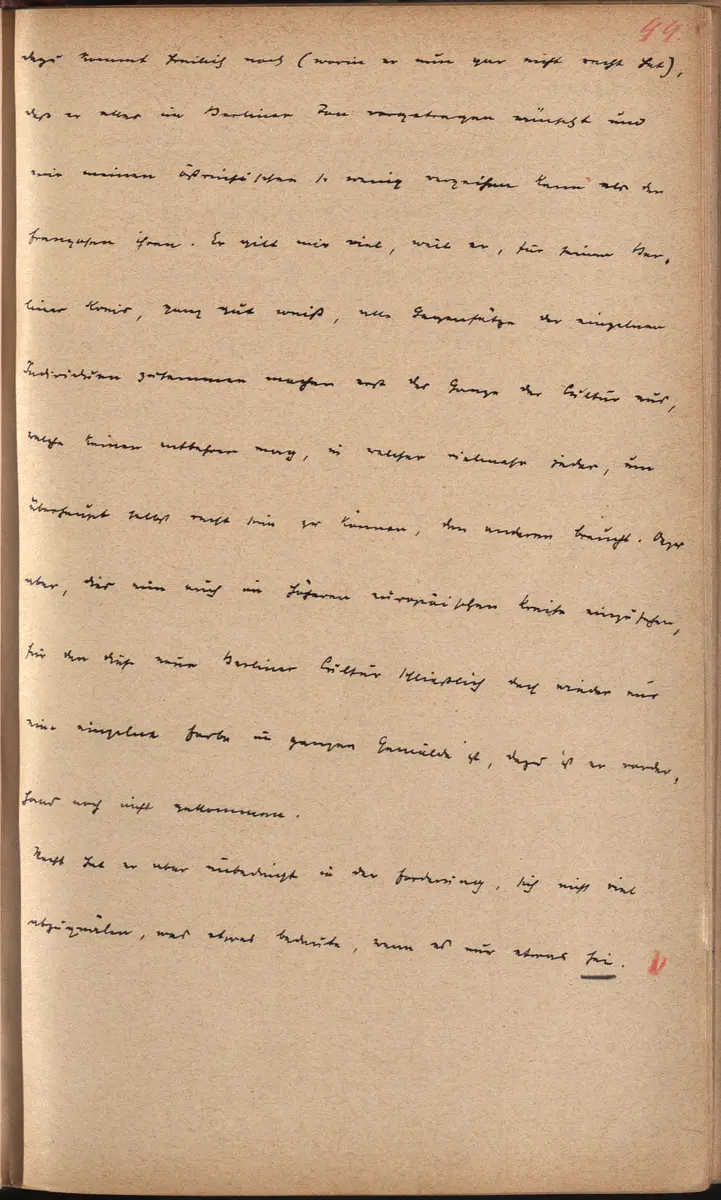 99.
dazu kommt freilich noch (worin er nun gar nicht recht hat),
daß er alles im Berliner Ton vorgetragen wünscht und
mir meinen österreichischen so wenig verzeihen kann als den
Franzosen ihren. Er gilt mir viel, weil er, für seinen Ber-
liner Kreis, ganz gut weiß, alle Gegensätze der einzelnen
Individuen zusammen machen erst das Ganze der Cultur aus,
welche keinen entbehren mag, in welcher vielmehr jeder, um
überhaupt selbst recht sein zu können, den anderen braucht. Dazu
aber, dies nun auch im höheren europäischen Kreise einzusehen,
für den diese neue Berliner Cultur schließlich doch wieder nur
eine einzelne Farbe im ganzen Gemälde ist, dazu ist er vorder-
hand noch nicht gekommen.
Recht hat er aber unbedingt in der Forderung, sich nicht viel
abzuquälen, was etwas bedeute, wenn es nur etwas sei.